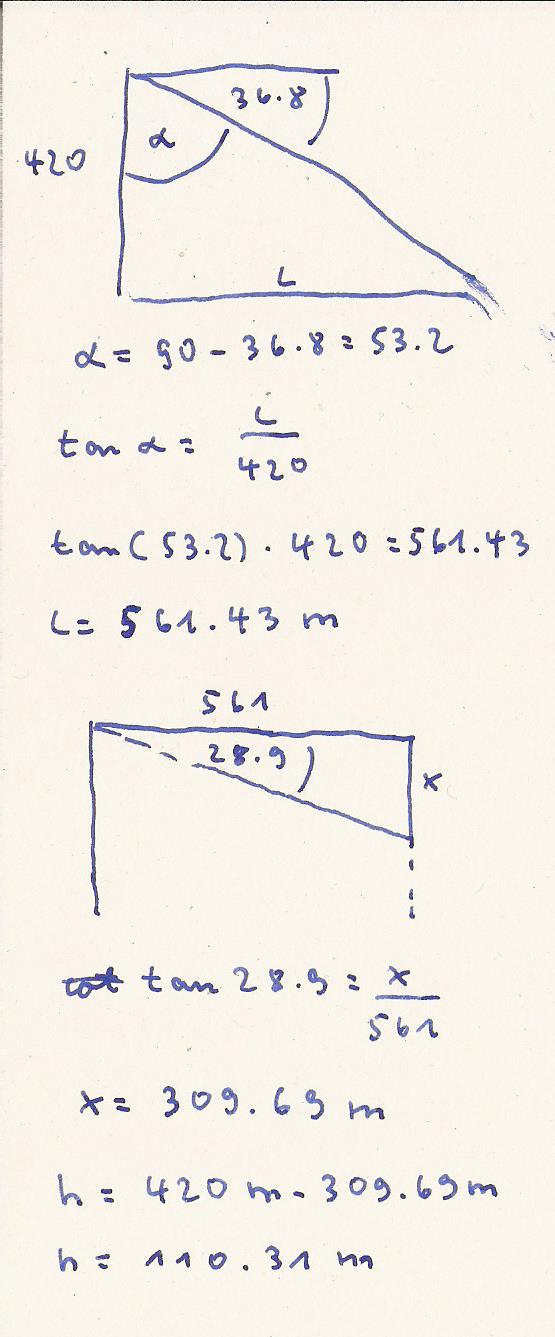 36.8
α
420
L
α = 90 - 36.8 = 53.2
tan α = L / 420
tan(53.2) · 420 = 561.43
L = 561.43 m
561
28.9
x
cot tan 28.9 = x / 561
x = 309.69 m
h = 420 m - 309.69 m
h = 110.31 m